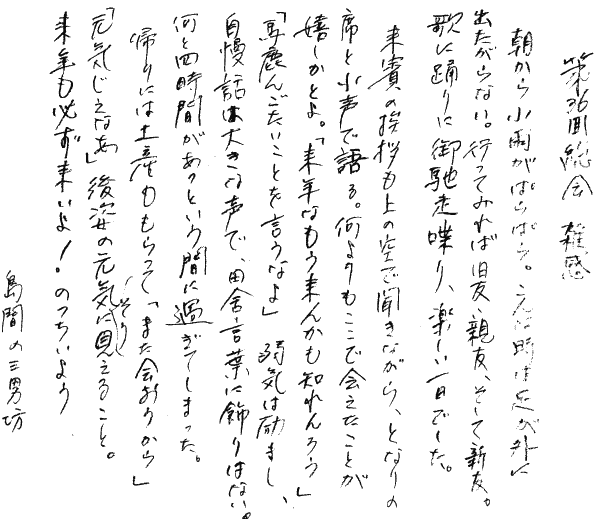 第36回総会 雑感
朝から小雨がぱらぱら。こんな時は足が外に
出たがらない。行ってみれば旧友、親友、そして新友。
歌に踊りに御馳走喋り、楽しい一日でした。
来賓の挨拶も上の空で聞きながら、となりの
席と小声で語る。何よりもここで会えたことが
嬉しかとよ。「来年なもう来んかも知れんろう」
「馬鹿んごたいことを言うなよ」 弱気は励まし、
自慢話は大きな声で、田舎言葉に飾りはない。
何と四時間があっという間に過ぎてしまった。
帰りには土産ももらって「また会おりから」
「元気じえなあ」後姿の元気に見えること。
来年も必ず来いよ!のっちいよう
島間の三男坊